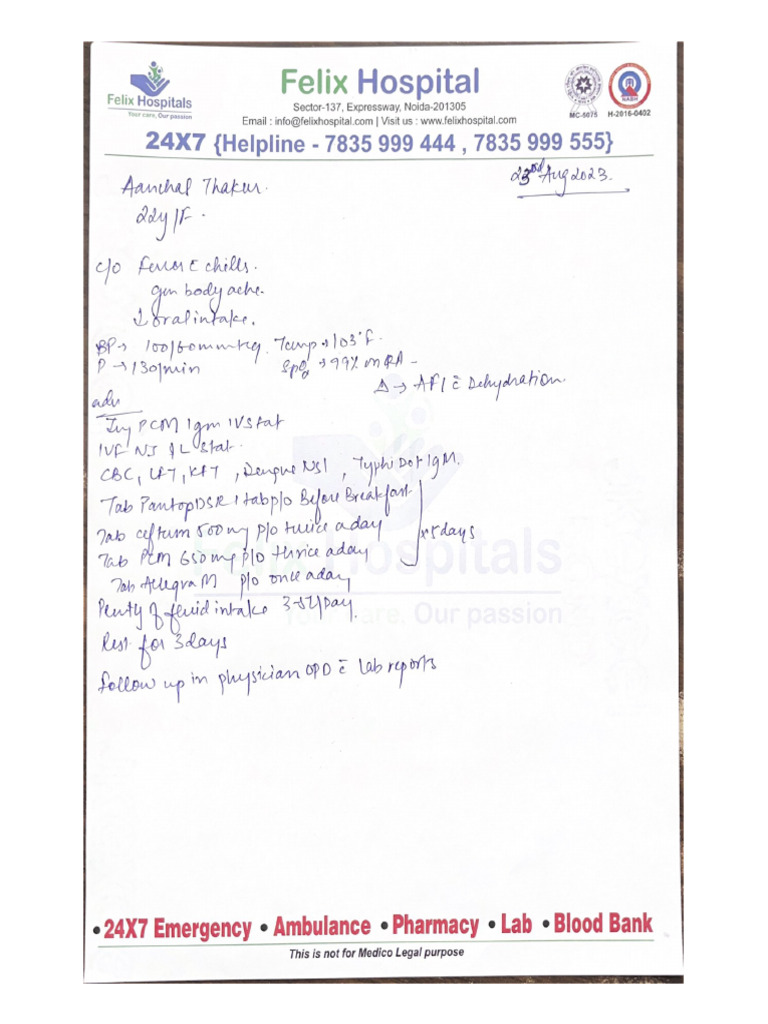 Felix Hospitals
Your care, Our passion
Felix Hospital
Sector-137, Expressway, Noida-201305
Email : info@felixhospital.com | Visit us : www.felixhospital.com
MC-5075
NABH
H-2016-0402
24X7 {Helpline - 7835 999 444 , 7835 999 555}
Aanchal Thakur.
23rd Aug 2023.
22y/F.
c/o Fever c̄ chills.
gen body ache.
↓ oral intake.
BP → 100/60 mmHg. Temp → 103°F.
P → 130/min SpO2 → 99% on RA
Δ → AFI c̄ Dehydration.
adv
Inj PCM 1gm IV Stat
IVF NS 1L Stat.
CBC, LFT, KFT, Dengue NS1, Typhi Dot IgM.
Tab Pantop DSR 1 tab p/o Before Breakfast
Tab ceftum 500mg p/o twice a day
x 5 days
Tab PCM 650mg p/o thrice a day
Tab Allegra M p/o once a day
Plenty of fluid intake 3-5L/Day.
Rest for 3 days
follow up in physician OPD c̄ Lab reports
Felix Hospitals
Your care, Our passion
• 24X7 Emergency • Ambulance • Pharmacy • Lab • Blood Bank
This is not for Medico Legal purpose